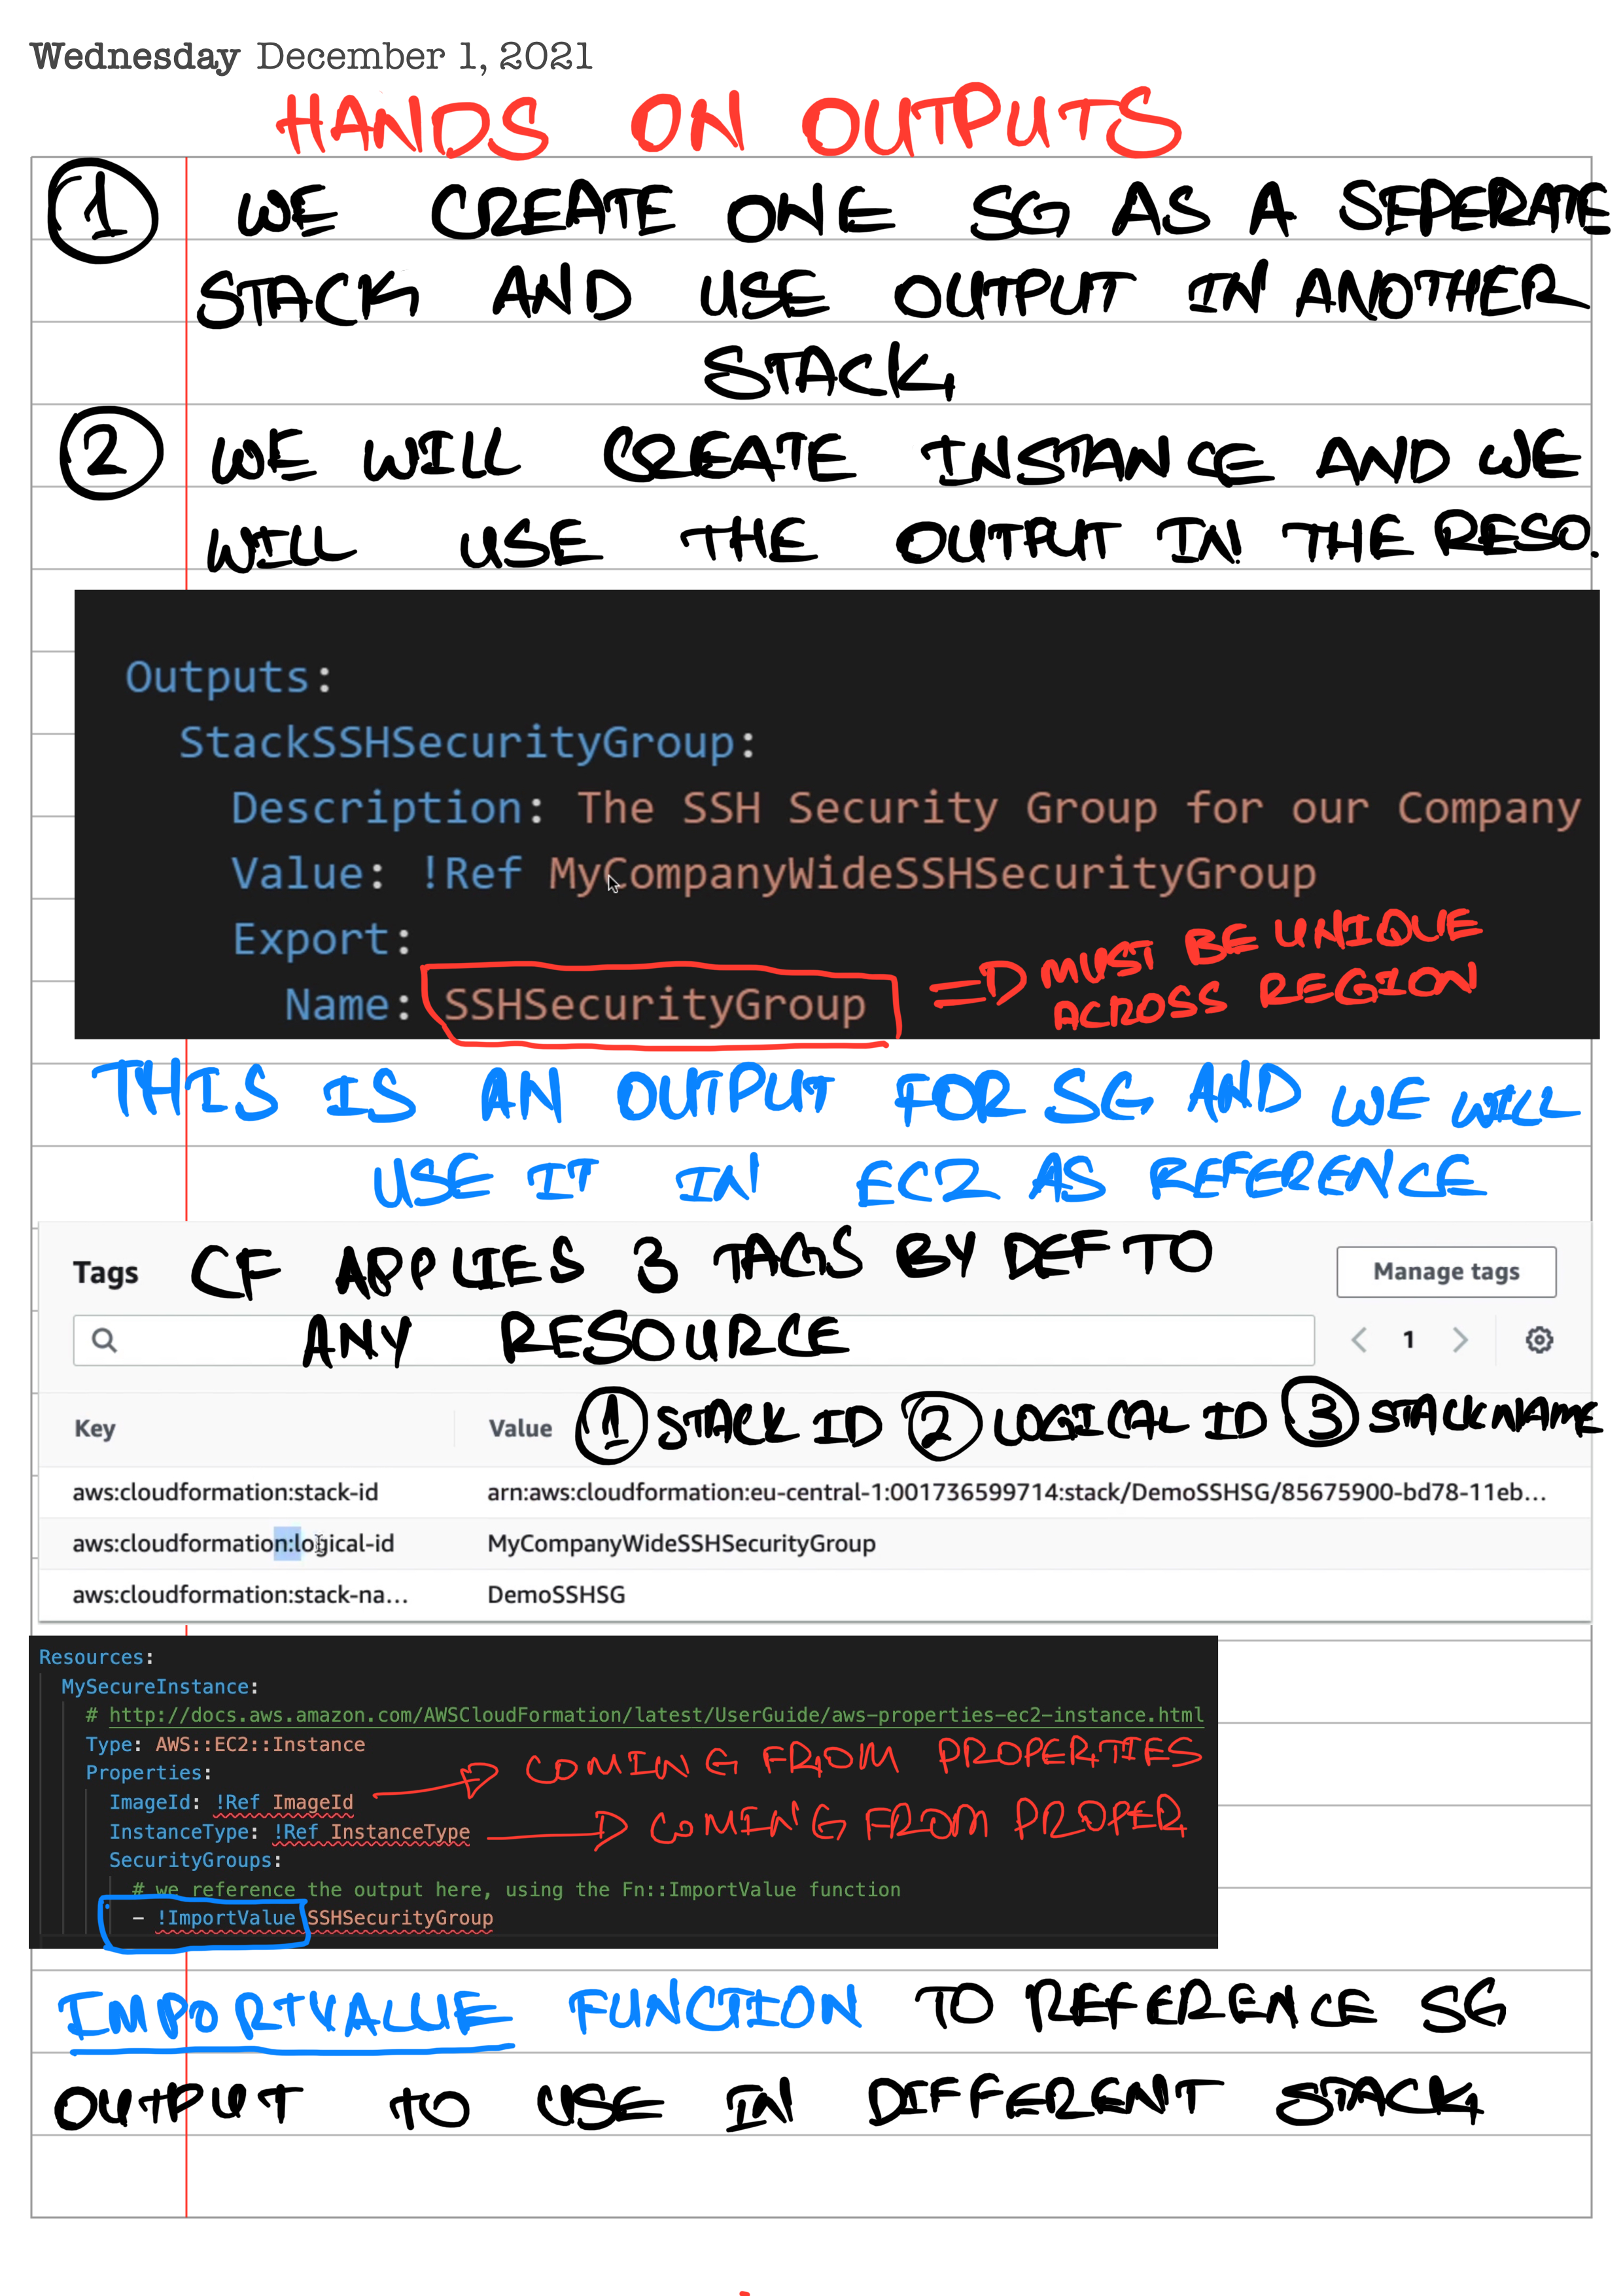 Wednesday December 1, 2021
HANDS ON OUTPUTS
1 WE CREATE ONE SG AS A SEPERATE
STACK AND USE OUTPUT IN ANOTHER
STACK
2 WE WILL CREATE INSTANCE AND WE
WILL USE THE OUTPUT IN THE RESO.
Outputs:
StackSSHSecurityGroup:
Description: The SSH Security Group for our Company
Value: !Ref MyCompanyWideSSHSecurityGroup
Export:
Name: SSHSecurityGroup => MUST BE UNIQUE
ACROSS REGION
THIS IS AN OUTPUT FOR SG AND WE WILL
USE IT IN EC2 AS REFERENCE
Tags CF APPLIES 3 TAGS BY DEF TO Manage tags
ANY RESOURCE 1
Key Value 1 STACK ID 2 LOGICAL ID 3 STACK NAME
aws:cloudformation:stack-id arn:aws:cloudformation:eu-central-1:001736599714:stack/DemoSSHSG/85675900-bd78-11eb...
aws:cloudformation:logical-id MyCompanyWideSSHSecurityGroup
aws:cloudformation:stack-na... DemoSSHSG
Resources:
MySecureInstance:
# http://docs.aws.amazon.com/AWSCloudFormation/latest/UserGuide/aws-properties-ec2-instance.html
Type: AWS::EC2::Instance
Properties: COMING FROM PROPERTIES
ImageId: !Ref ImageId
InstanceType: !Ref InstanceType COMING FROM PROPER
SecurityGroups:
# we reference the output here, using the Fn::ImportValue function
- !ImportValue SSHSecurityGroup
IMPORTVALUE FUNCTION TO REFERENCE SG
OUTPUT TO USE IN DIFFERENT STACK